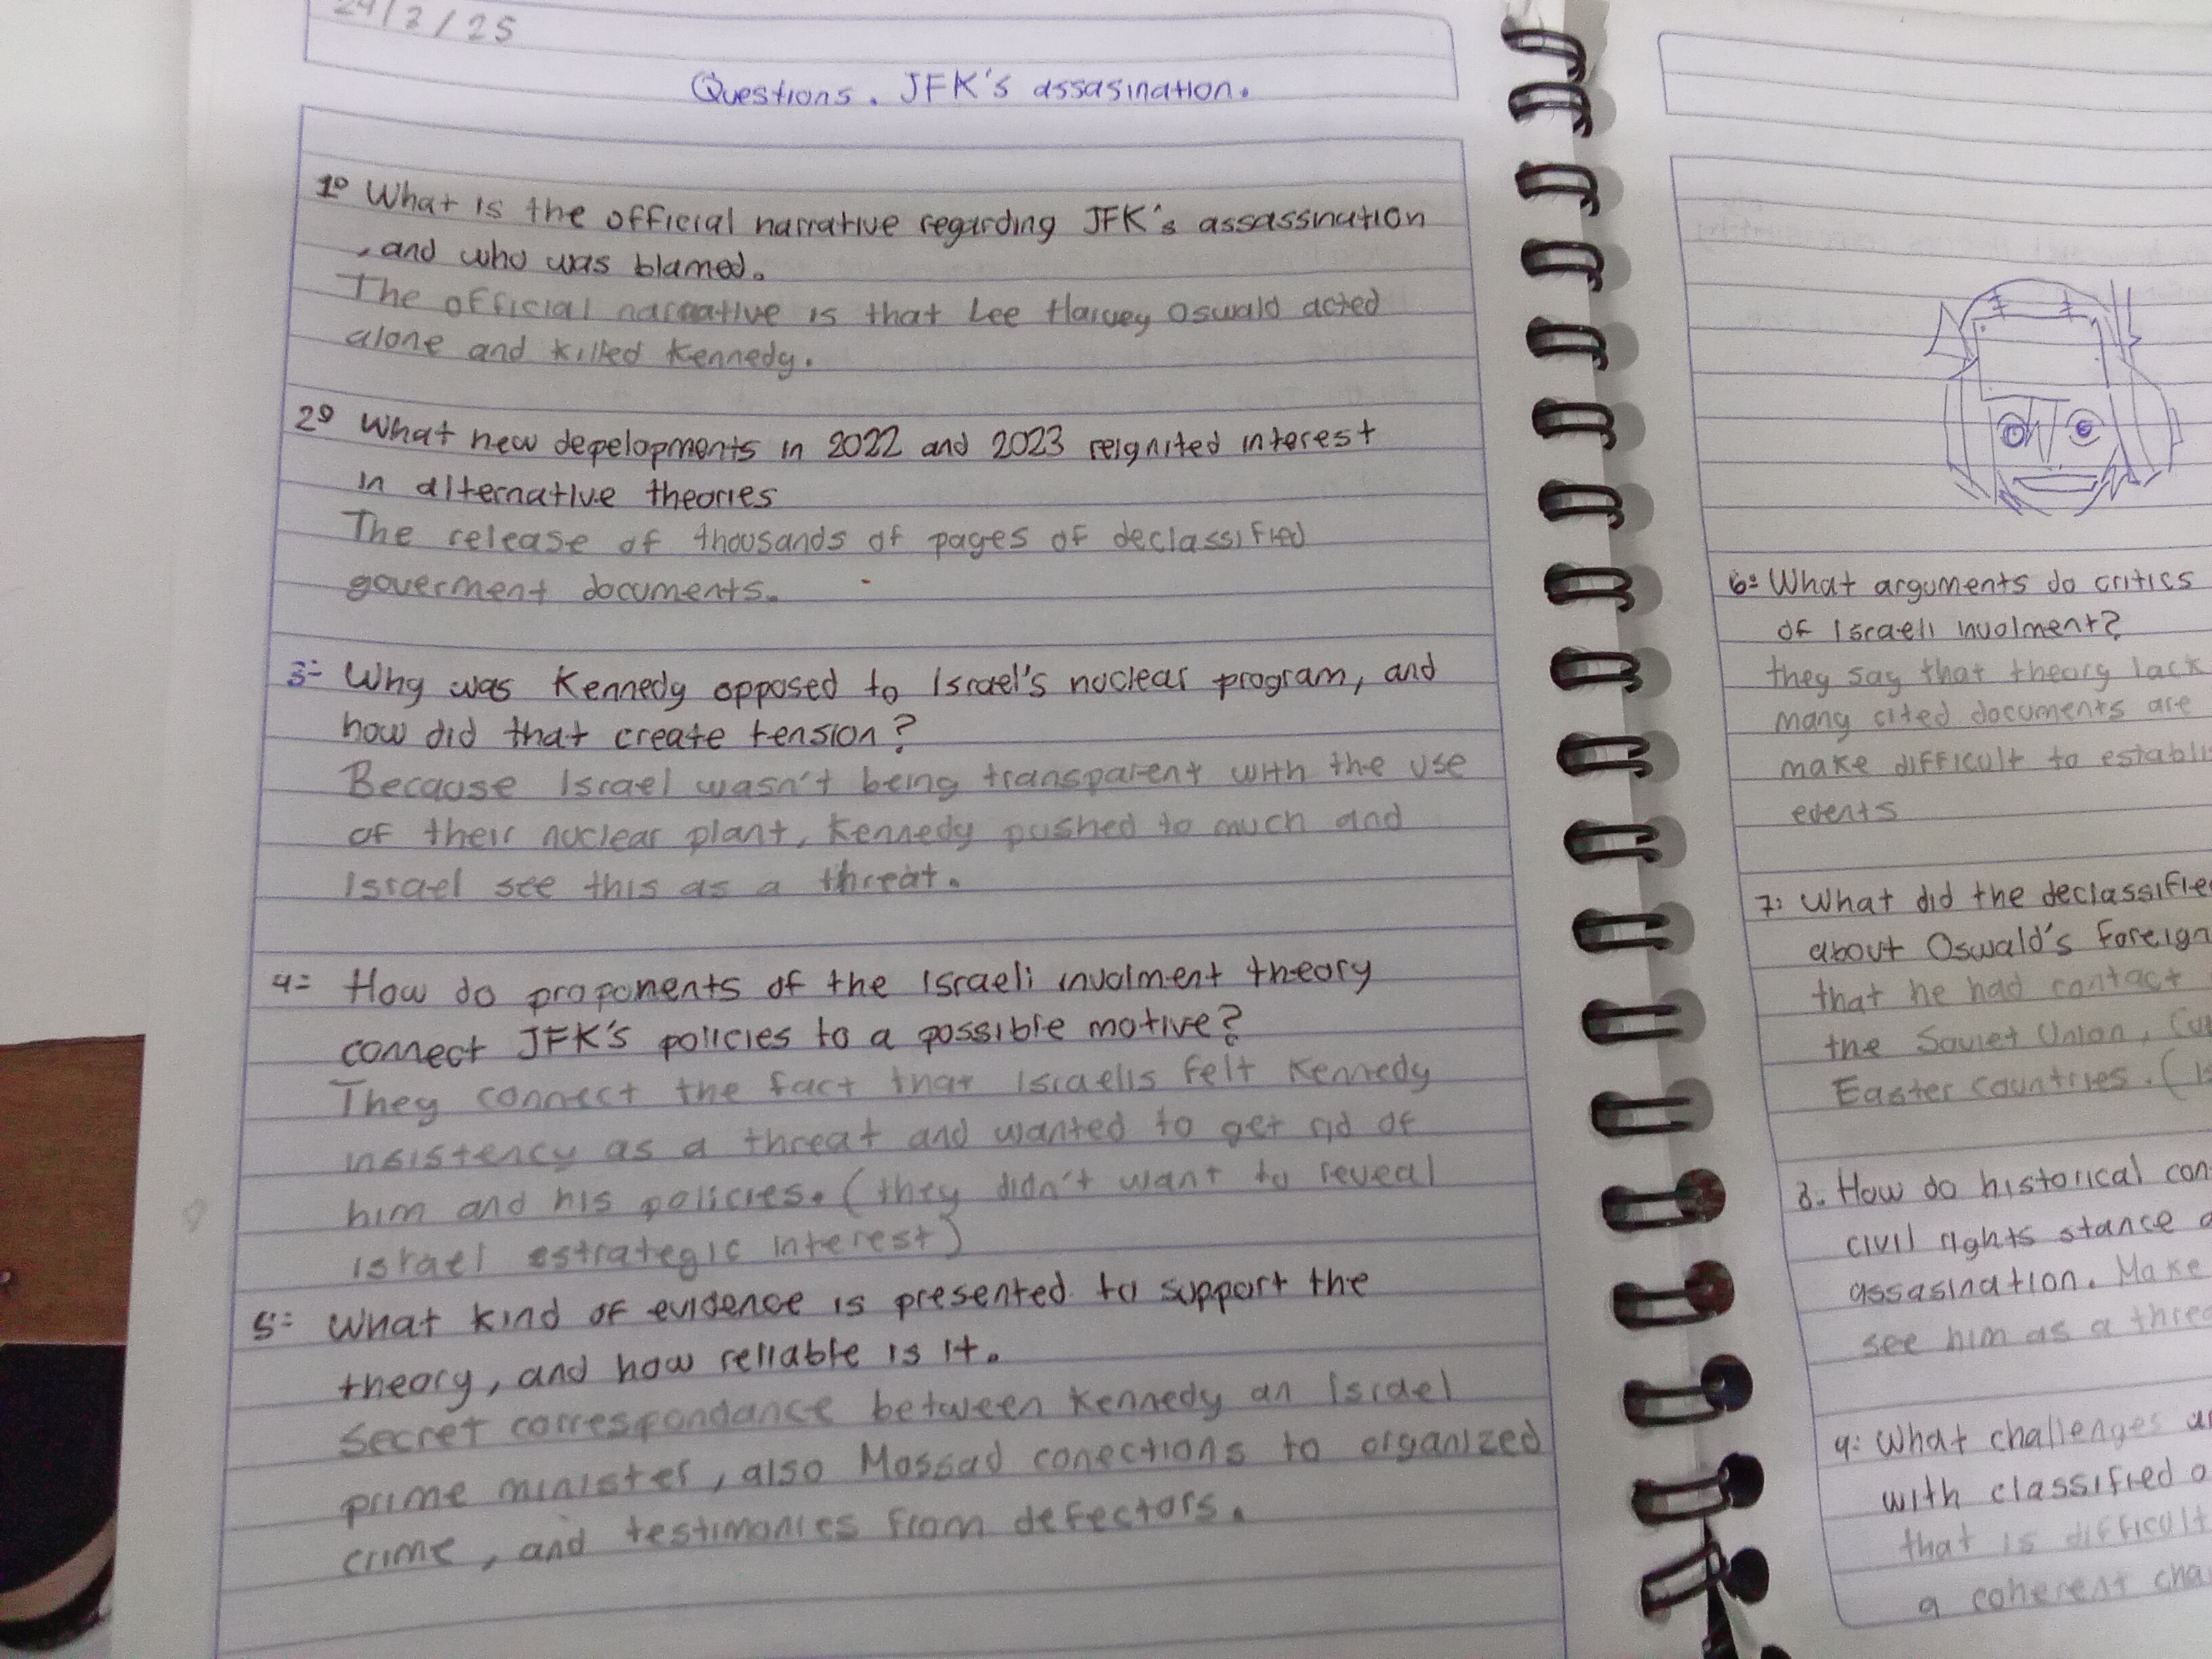 24/2/25
Questions. JFK's assasination.
1º What is the official narrative regarding JFK's assassination
, and who was blamed.
The official narrative is that Lee Harvey Oswald acted
alone and killed Kennedy.
2º What new depelopments in 2022 and 2023 reignited interest
in alternative theories
The release of thousands of pages of declassified
goverment documents.
3- Why was Kennedy opposed to Israel's nuclear program, and
how did that create tension?
Because Israel wasn't being transparent with the use
of their nuclear plant, Kennedy pushed to much and
Israel see this as a threat.
4= How do proponents of the Israeli involment theory
connect JFK's policies to a possible motive?
They connect the fact that Israelis felt Kennedy
insistency as a threat and wanted to get rid of
him and his policies. (they didn't want to reveal
israel estrategic interest)
5= What kind of evidence is presented to support the
theory, and how reliable is it.
Secret correspondance between Kennedy an Israel
prime minister, also Mossad conections to organized
crime, and testimonies from defectors.
6= What arguments do critics
of Israeli involment?
they say that theory lack
many cited documents are
make difficult to establi
events
7: What did the declassifie
about Oswald's foreign
that he had contact
the Soviet Union, Cu
Easter countries. (
8. How do historical con
civil rights stance
assasination. Make
see him as a threa
9: What challenges
with classified
that is difficult
a coherent cha